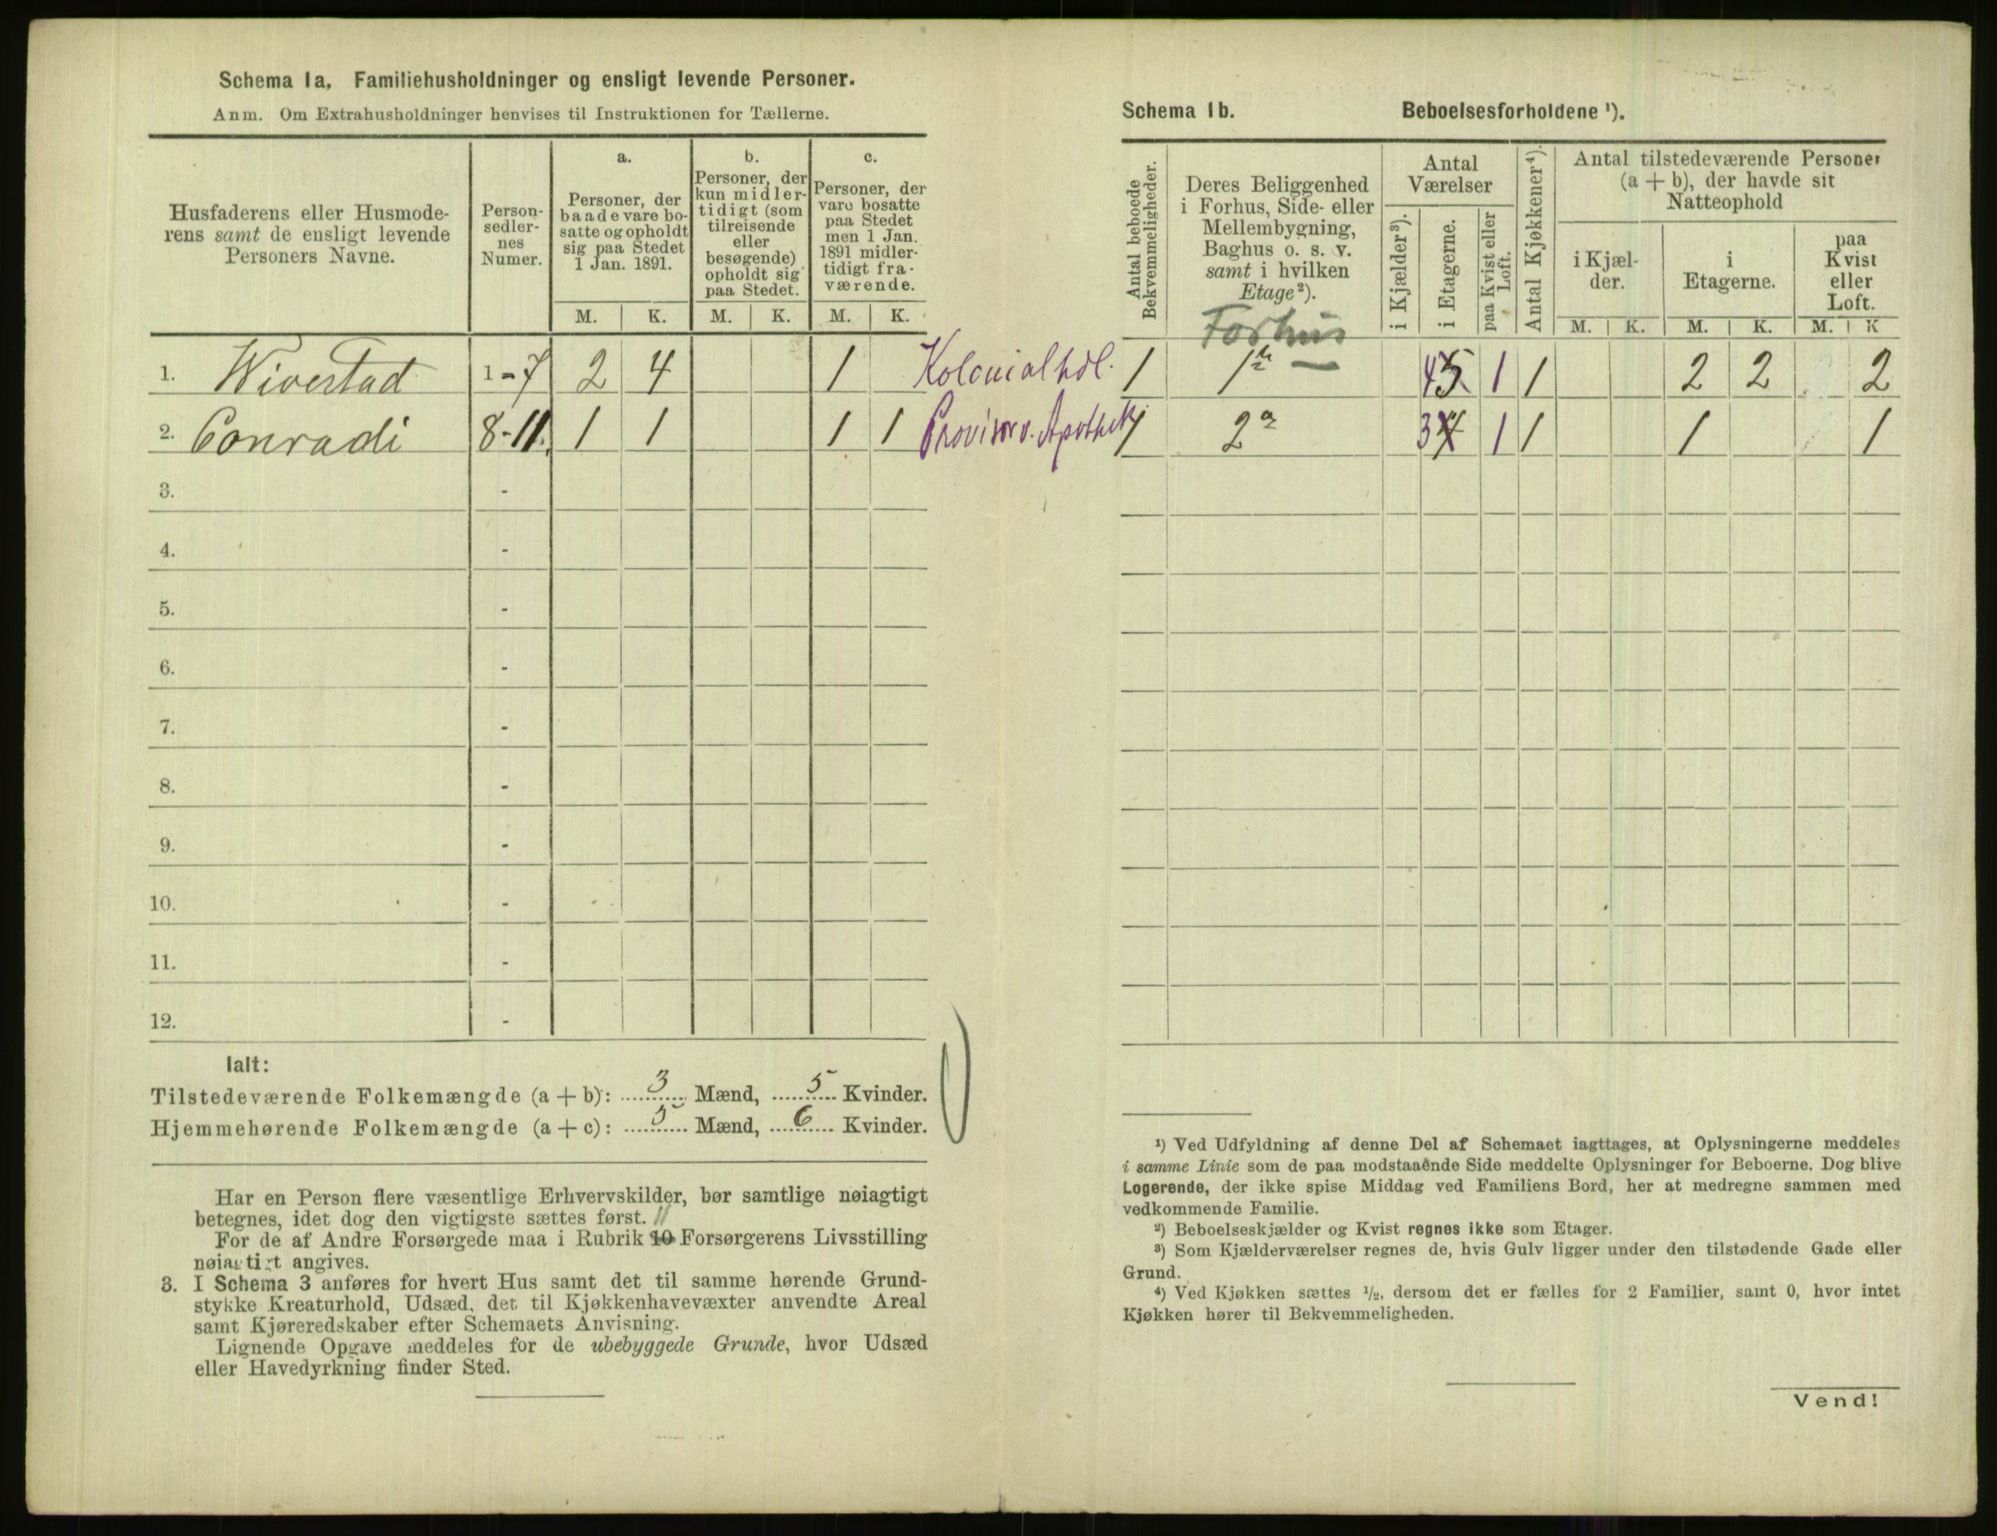 Schema 1a. Familiehusholdninger og ensligt levende Personer.
Anm. Om Extrahusholdninger henvises til Instruktionen for Tællerne.
Husfaderens eller Husmode-
rens samt de ensligt levende
Personers Navne.
Person-
sedler-
nes
Numer.
a.
Personer, der
baade vare bo-
satte og opholdt
sig paa Stedet
1 Jan. 1891.
b.
Personer, der
kun midler-
tidigt (som
tilreisende
eller
besøgende)
opholdt sig
paa Stedet.
c.
Personer, der
vare bosatte
paa Stedet
men 1 Jan.
1891 midler-
tidigt fra-
værende.
M. K. M. K. M. K.
1. Wivestad 1 - 7 2 4 1 Kolonialhdl.
2. Conradi 8 - 11. 1 1 1 1 Provisor v. Apothek
3. -
4. -
5. -
6. -
7. -
8. -
9. -
10. -
11. -
12. -
Ialt:
Tilstedeværende Folkemængde (a + b): 3 Mænd, 5 Kvinder.
Hjemmehørende Folkemængde (a + c): 5 Mænd, 6 Kvinder.
Har en Person flere væsentlige Erhvervskilder, bør samtlige nøiagtigt
betegnes, idet dog den vigtigste sættes først. 11
For de af Andre Forsørgede maa i Rubrik 10 Forsørgerens Livsstilling
nøiagtigt angives.
3. I Schema 3 anføres for hvert Hus samt det til samme hørende Grund-
stykke Kreaturhold, Udsæd, det til Kjøkkenhavevæxter anvendte Areal
samt Kjøreredskaber efter Schemaets Anvisning.
Lignende Opgave meddeles for de ubebyggede Grunde, hvor Udsæd
eller Havedyrkning finder Sted.
Schema 1b. Beboelsesforholdene ¹).
Antal beboede
Bekvemmeligheder.
Deres Beliggenhed
i Forhus, Side- eller
Mellembygning,
Baghus o. s. v.
samt i hvilken
Etage²).
Antal
Værelser
i Kjælder³).
i Etagerne.
paa Kvist eller
Loft.
Antal Kjøkkener⁴).
Antal tilstedeværende Personer
(a + b), der havde sit
Natteophold
i Kjæl-
der.
i
Etagerne.
paa
Kvist
eller
Loft.
M. K. M. K. M. K
Forhus
1 1ª — 45 1 1 2 2 2
1 2ª 34 1 1 1 1
¹) Ved Udfyldning af denne Del af Schemaet iagttages, at Oplysningerne meddeles
i samme Linie som de paa modstaaende Side meddelte Oplysninger for Beboerne. Dog blive
Logerende, der ikke spise Middag ved Familiens Bord, her at medregne sammen med
vedkommende Familie.
²) Beboelseskjælder og Kvist regnes ikke som Etager.
³) Som Kjælderværelser regnes de, hvis Gulv ligger under den tilstødende Gade eller
Grund.
⁴) Ved Kjøkken sættes ½, dersom det er fælles for 2 Familier, samt 0, hvor intet
Kjøkken hører til Bekvemmeligheden.
Vend!